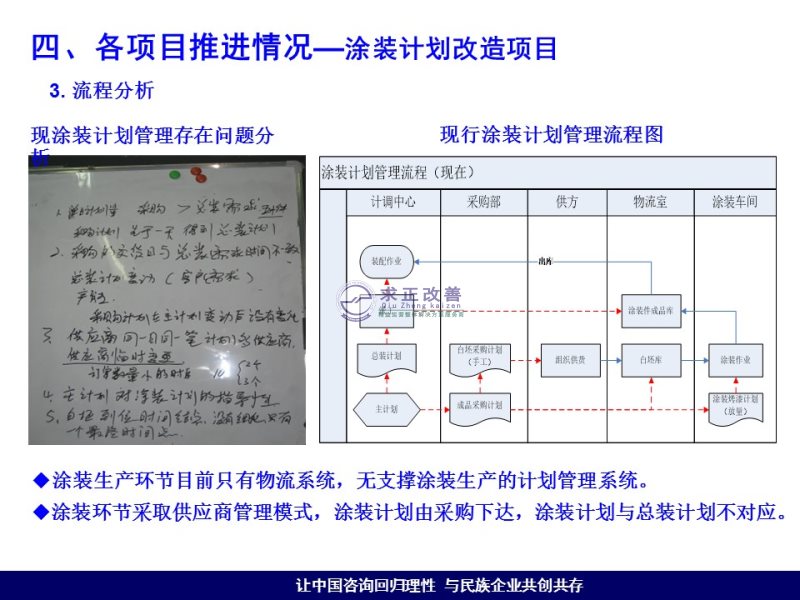 四、各项目推进情况—涂装计划改造项目
3. 流程分析
现涂装计划管理存在问题分
析
现行涂装计划管理流程图
采购
2. 采购的交货日与总装需求时间不一致
总装计划变动（客户需求）
产能.
采购计划在主计划变动后没有变化
3. 供应商同一日同一笔计划多供应商,
供应商临时变更
4. 主计划对涂装计划的指导性
5. 白坯到位时间
涂装计划管理流程（现在）
计调中心
采购部
供方
物流室
涂装车间
装配作业
出库
求正改善
Qiu Zheng kaizen
精益运营整体解决方案服务商
涂装件成品库
总装计划
白坯采购计划
（手工）
组织供货
白坯库
涂装作业
主计划
成品采购计划
涂装烤漆计划
（放量）
◆涂装生产环节目前只有物流系统，无支撑涂装生产的计划管理系统。
◆涂装环节采取供应商管理模式，涂装计划由采购下达，涂装计划与总装计划不对应。
让中国咨询回归理性 与民族企业共创共存